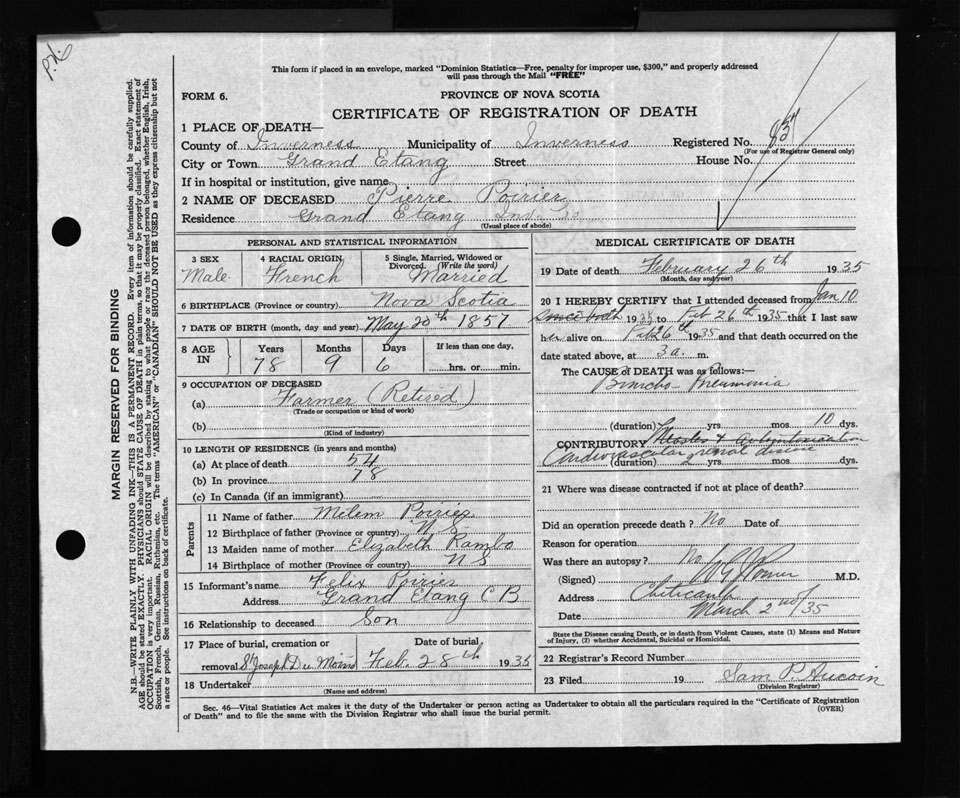 P.N.
This form if placed in an envelope, marked "Dominion Statistics—Free, penalty for improper use, $300," and properly addressed
will pass through the Mail "FREE"
FORM 6.
PROVINCE OF NOVA SCOTIA
CERTIFICATE OF REGISTRATION OF DEATH
1 PLACE OF DEATH—
County of Inverness Municipality of Inverness Registered No.
(For use of Registrar General only)
City or Town Grand Etang Street House No.
If in hospital or institution, give name
2 NAME OF DECEASED Pierre Poirier
Residence Grand Etang Inv. Co
(Usual place of abode)
PERSONAL AND STATISTICAL INFORMATION
3 SEX Male
4 RACIAL ORIGIN French
5 Single, Married, Widowed or Divorced (Write the word) Married
6 BIRTHPLACE (Province or country) Nova Scotia
7 DATE OF BIRTH (month, day and year) May 20th 1857
8 AGE IN Years 78 Months 9 Days 6 If less than one day, hrs. or min.
9 OCCUPATION OF DECEASED
(a) Farmer (Retired)
(Trade or occupation or kind of work)
(b)
(Kind of industry)
10 LENGTH OF RESIDENCE (in years and months)
(a) At place of death 54
(b) In province 78
(c) In Canada (if an immigrant)
Parents
11 Name of father Milem Poirier
12 Birthplace of father (Province or country) N S
13 Maiden name of mother Elizabeth Rambo
14 Birthplace of mother (Province or country) N S
15 Informant's name Felix Poirier
Address Grand Etang C B
16 Relationship to deceased Son
17 Place of burial, cremation or removal St Joseph Du Moine Date of burial Feb. 28th 1935
18 Undertaker
(Name and address)
MEDICAL CERTIFICATE OF DEATH
19 Date of death February 26th 1935
(Month, day and year)
20 I HEREBY CERTIFY that I attended deceased from Jan 10
1935 to Feb 26th 1935 that I last saw
h alive on Feb 26th 1935 and that death occurred on the
date stated above, at 3 a. m.
The CAUSE OF DEATH was as follows:—
Broncho-Pneumonia
(duration) yrs. mos. 10 dys.
CONTRIBUTORY
Cardiovascular renal disease
(duration) 2 yrs. mos. dys.
21 Where was disease contracted if not at place of death?
Did an operation precede death? No Date of
Reason for operation
Was there an autopsy? No
(Signed) M.D.
Address Cheticamp
Date March 2nd/35
State the Disease causing Death, or in death from Violent Causes, state (1) Means and Nature
of Injury, (2) whether Accidental, Suicidal or Homicidal.
22 Registrar's Record Number
23 Filed 19 Sam P. Aucoin
(Division Registrar)
Sec. 46—Vital Statistics Act makes it the duty of the Undertaker or person acting as Undertaker to obtain all the particulars required in the "Certificate of Registration
of Death" and to file the same with the Division Registrar who shall issue the burial permit.
(OVER)
MARGIN RESERVED FOR BINDING
N.B.—WRITE PLAINLY WITH UNFADING INK—THIS IS A PERMANENT RECORD. Every item of information should be carefully supplied.
AGE should be stated EXACTLY. PHYSICIANS should STATE CAUSE OF DEATH in plain terms, so that it may be properly classified. Exact statement of
OCCUPATION is very important. RACIAL ORIGIN will be described by stating to what people or race the deceased person belonged, whether English, Irish,
Scottish, French, German, Russian, Ruthenian, etc. The terms "AMERICAN" or "CANADIAN" SHOULD NOT BE USED as they express citizenship but not
a race or people. See instructions on back of certificate.